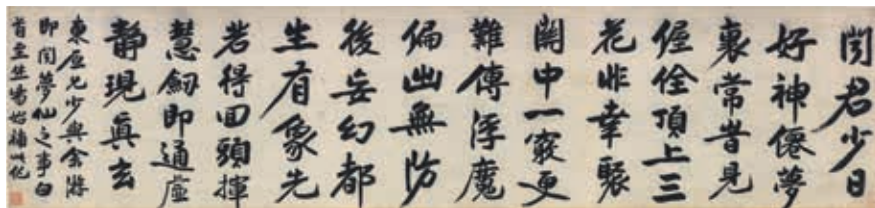 聞君少日
好神僊夢
裏常昔見
偓佺頂上三
花非幸聚
關中一竅更
難傳浮魔
偏出無防
後妄幻都
生有象先
若得回頭揮
慧劒即通虛
靜現真玄
東原兄少與余游
即聞夢仙之事白
首始補